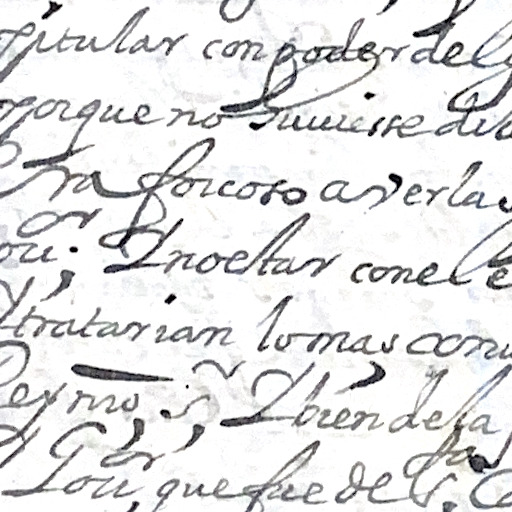 pitular con poder del
porque no huuiesse dila
Era forcoso averlas
Gou.or Y no estar con el e
Y tratarian lo mas conu
Rey nro, s.r, Y bien de la
Y Gou.or que fue de s. Ca